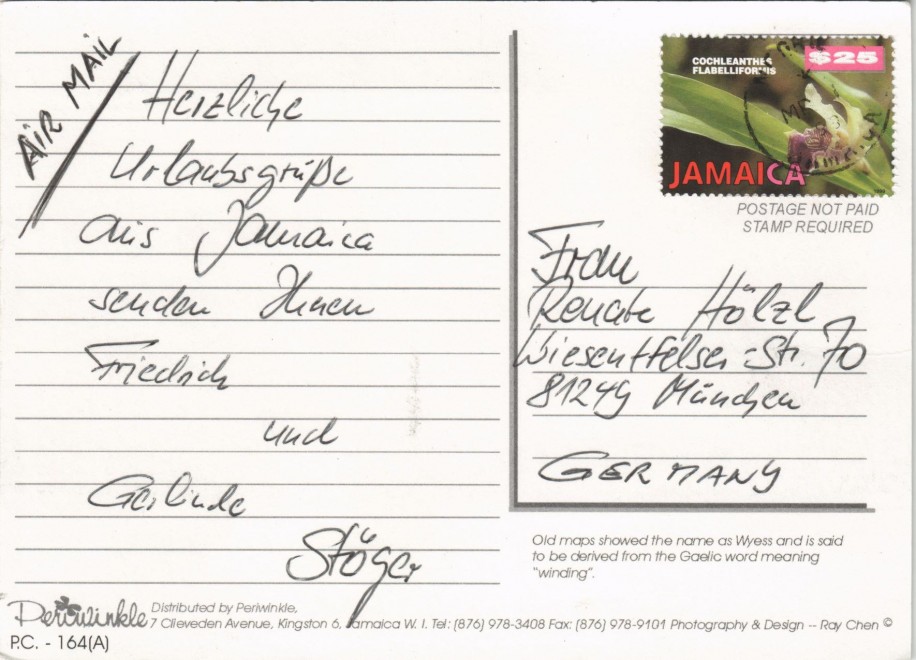 AIR MAIL
Herzliche
Urlaubsgrüße
aus Jamaica
senden Ihnen
Friedrich
und
Gerlinde
Stöger
COCHLEANTHES
FLABELLIFORMIS
$25
JAMAICA
POSTAGE NOT PAID
STAMP REQUIRED
Frau
Renate Hölzl
Wiesentfelser-Str. 70
81249 München
GERMANY
Old maps showed the name as Wyess and is said
to be derived from the Gaelic word meaning
"winding".
Periwinkle
Distributed by Periwinkle,
7 Clieveden Avenue, Kingston 6, Jamaica W. I. Tel: (876) 978-3408 Fax: (876) 978-9101 Photography & Design -- Ray Chen ©
P.C. - 164(A)